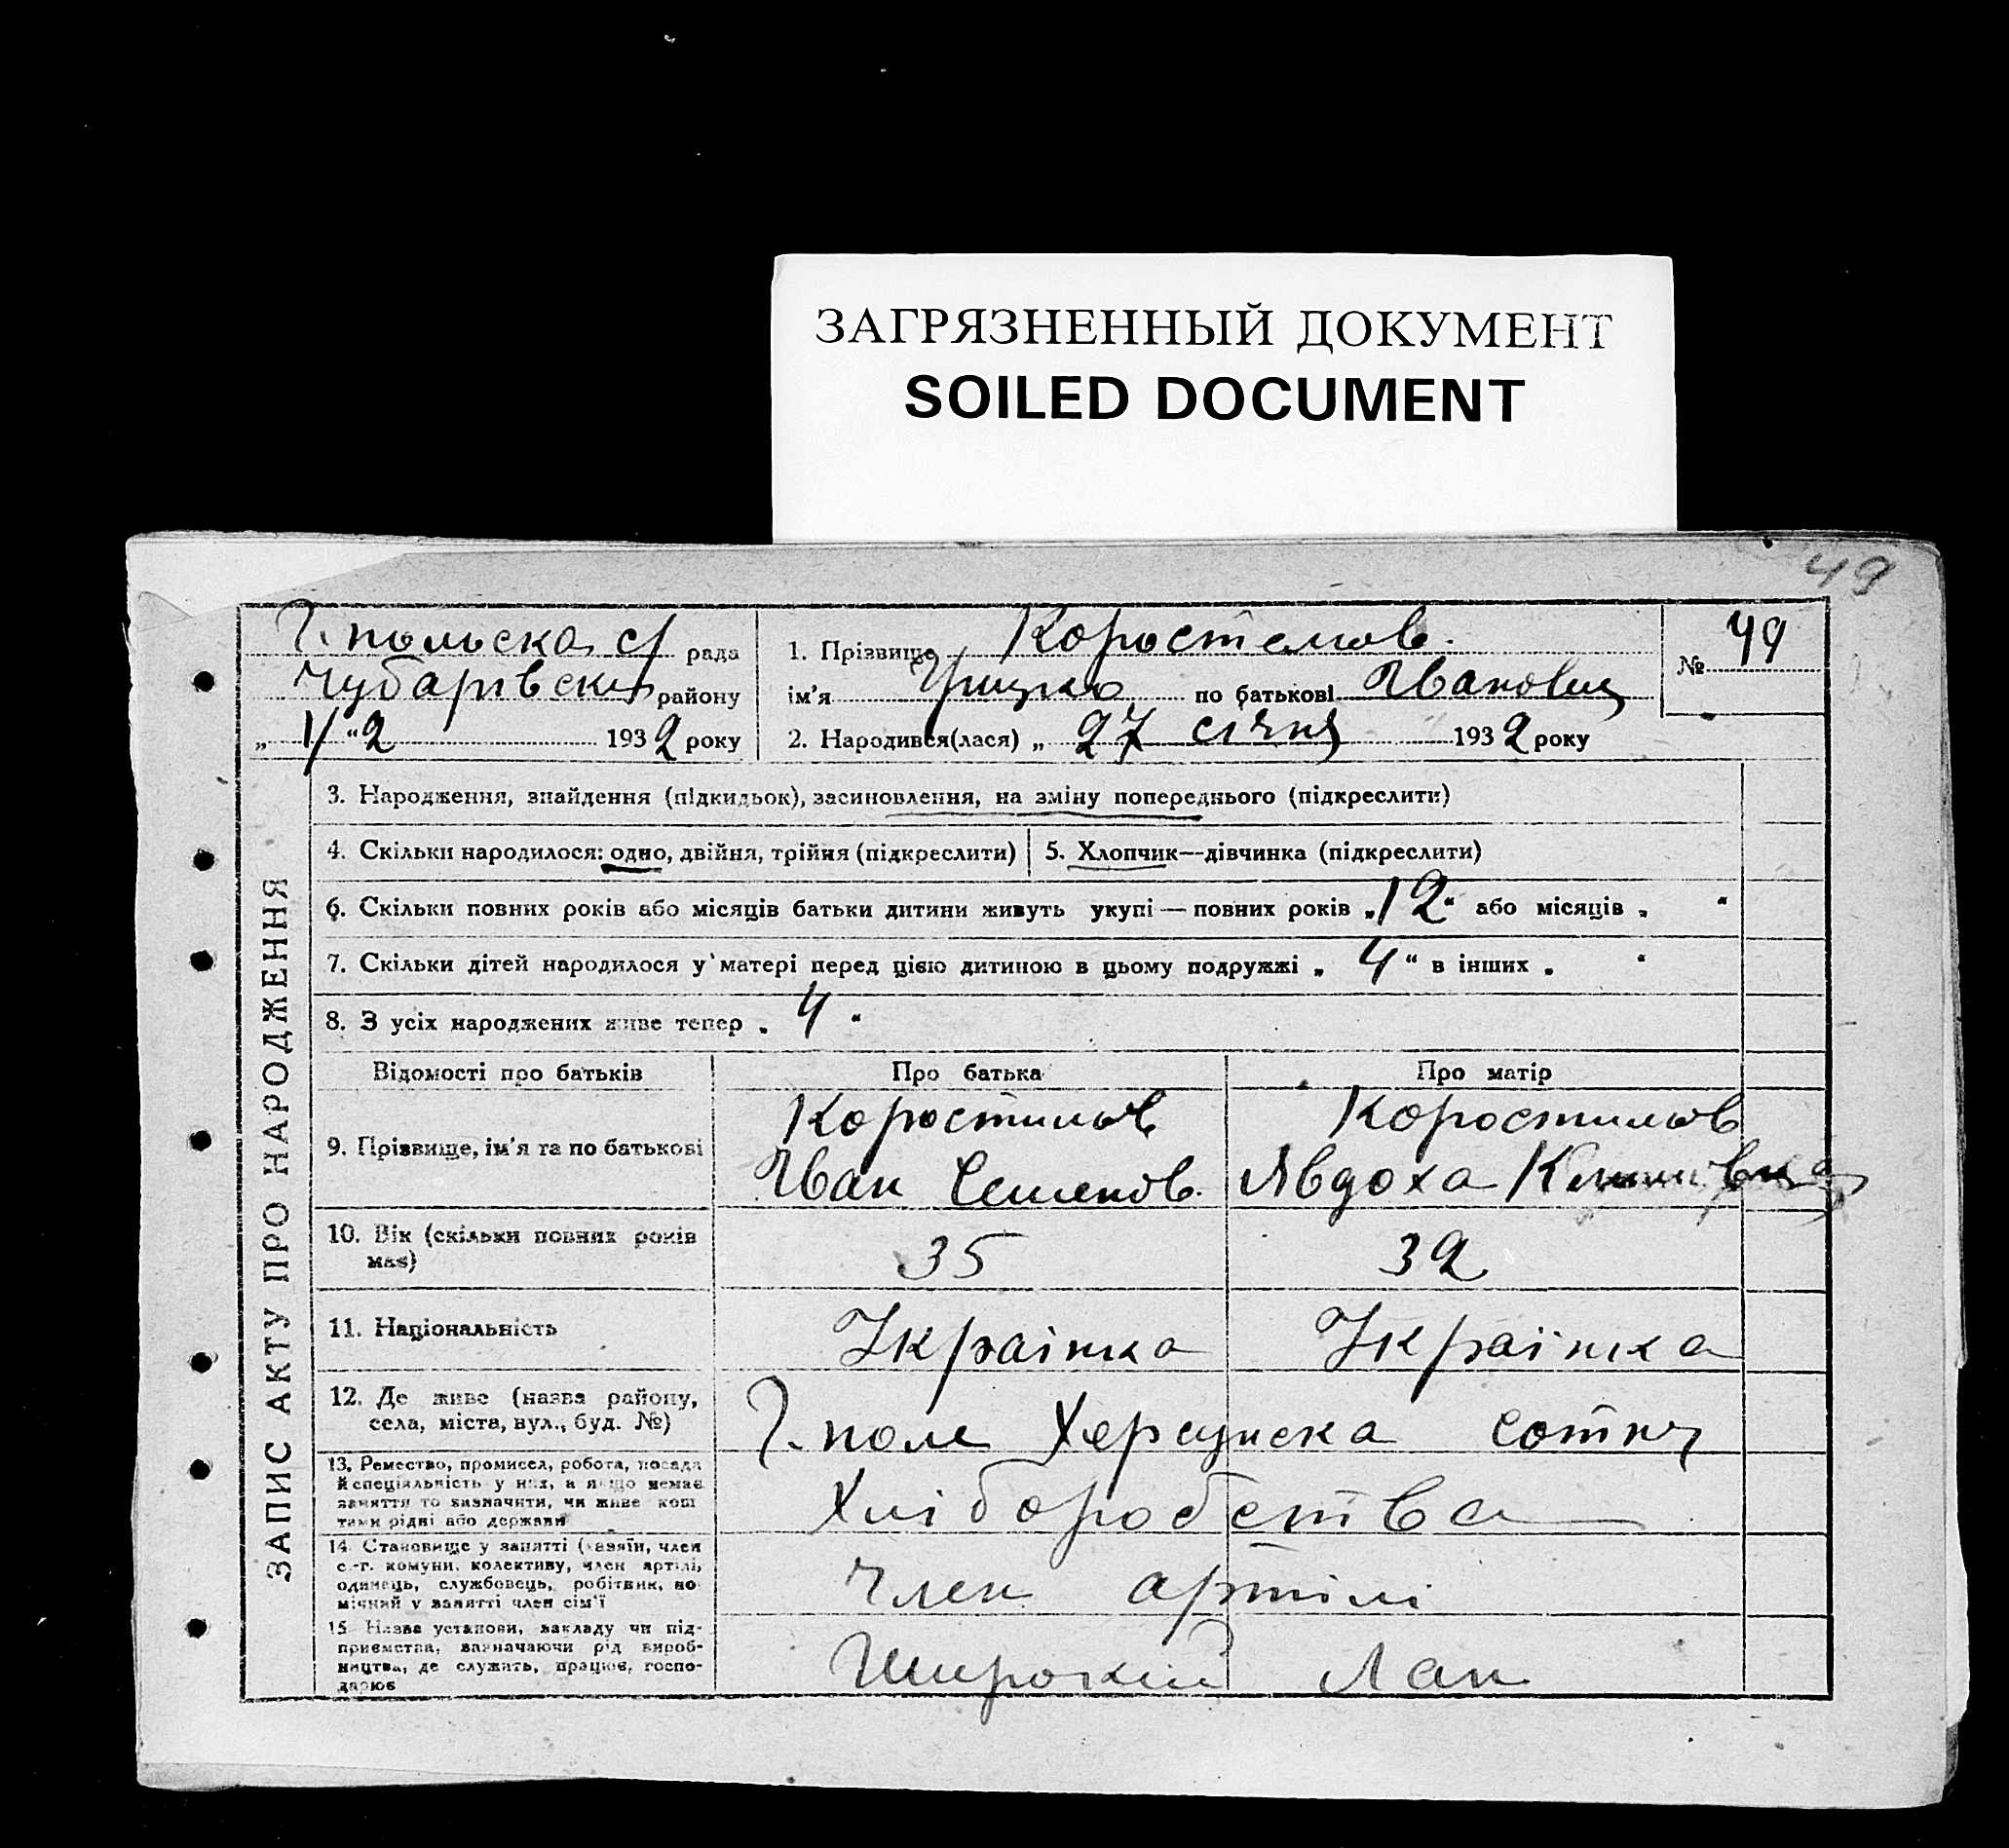 ЗАГРЯЗНЕННЫЙ ДОКУМЕНТ
SOILED DOCUMENT
49
Г. польська с/ рада
Чубарівськ району
„ 1/ “ 2 1932 року
1. Прізвище Коростельов.
ім'я Грицько по батькові Іванович
2. Народився(лася) „ 27 січня 1932 року
№ 49
ЗАПИС АКТУ ПРО НАРОДЖЕННЯ
3. Народження, знайдення (підкидьок), засиновлення, на зміну попереднього (підкреслити)
4. Скільки народилося: одно, двійня, трійня (підкреслити)
5. Хлопчик—дівчинка (підкреслити)
6. Скільки повних років або місяців батьки дитини живуть укупі — повних років „12“ або місяців „ “
7. Скільки дітей народилося у матері перед цією дитиною в цьому подружжі „ 4 “ в інших „ “
8. З усіх народжених живе тепер „ 4 “
Відомості про батьків
Про батька
Про матір
9. Прізвище, ім'я та по батькові
Коростильов
Іван Семенов.
Коростильов
Явдоха
10. Вік (скільки повних років
має)
35
32
11. Національність
Українка
Українка
12. Де живе (назва району,
села, міста, вул., буд. №)
Г. поле Херсунська сотня
13. Ремество, промисел, робота, посада
й спеціяльність у них, а якщо немає
заняття то визначити, чи живе кош
тами рідні або держави
Хліборобства
14. Становище у занятті (хазяїн, член
с.-г. комуни, колективу, член артілі,
одинець, службовець, робітник, по
мічний у занятті член сім'ї
Член артілі
15. Назва установи, закладу чи під-
приємства, вазначаючи рід вироб-
ництва, де служить, працює, госпо-
дарює
Широкий Лан